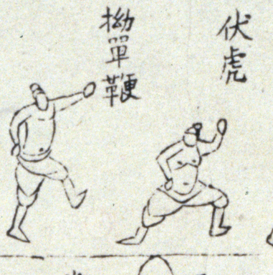 伏虎
拗單鞭